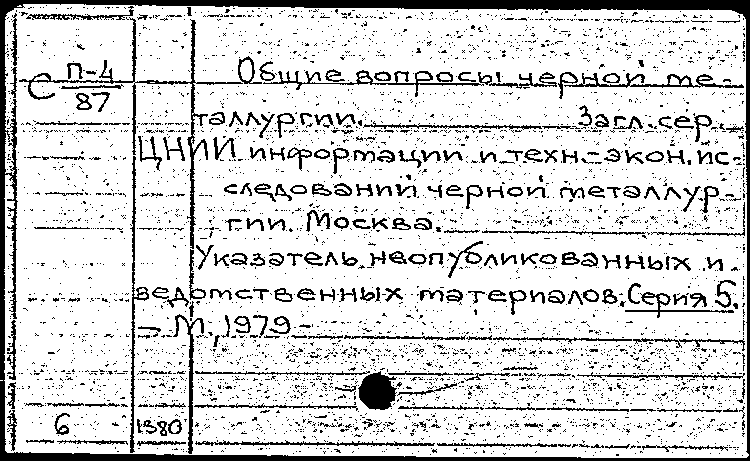 С П-4
87
Общие вопросы черной ме-
таллургии. Загл. сер.
ЦНИИ информации и техн.-экон. ис-
следований черной металлур-
гии. Москва.
Указатель неопубликованных и
ведомственных материалов. Серия 5.
– М., 1979 –
6 1380